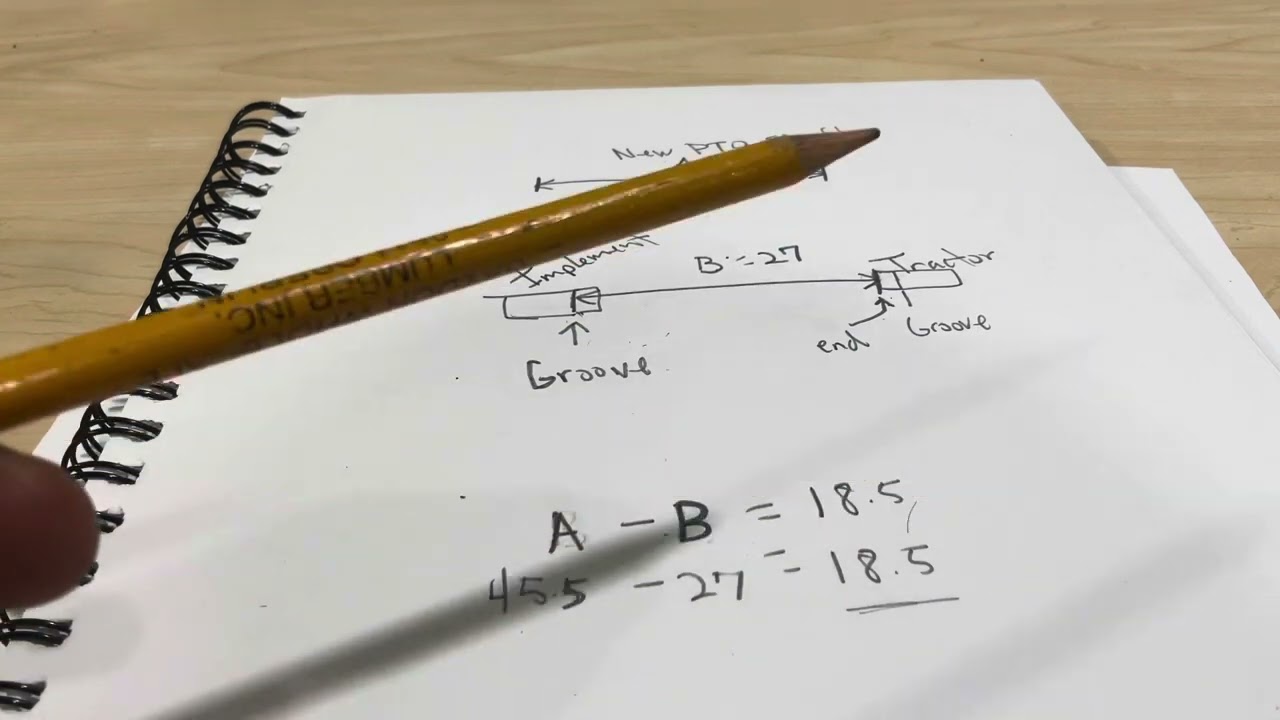 New PTO
Implement
B = 27
Tractor
end
Groove
Groove
A - B = 18.5
45.5 - 27 = 18.5
LUMBER, INC.